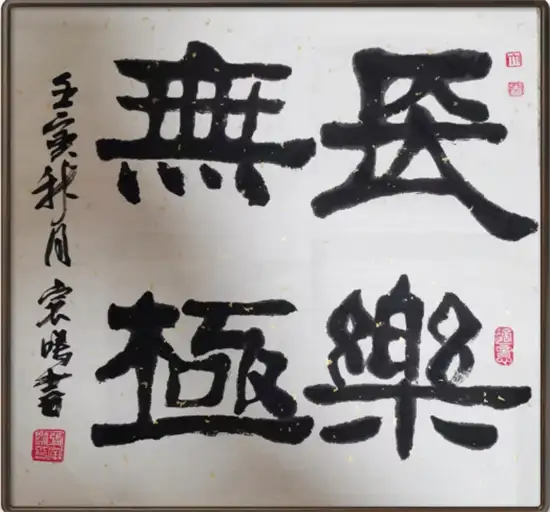 長樂
無極
壬寅秋月
書